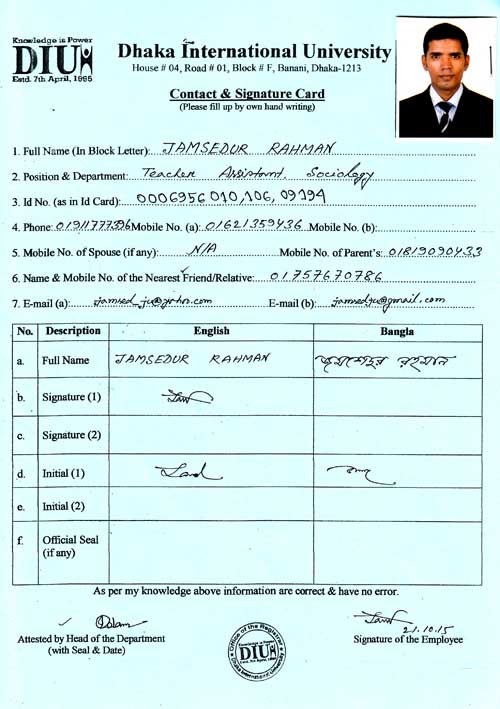 Knowledge is Power
DIU
Estd. 7th April, 1995
Dhaka International University
House # 04, Road # 01, Block # F, Banani, Dhaka-1213
Contact & Signature Card
(Please fill up by own hand writing)
1. Full Name (In Block Letter): JAMSEDUR RAHMAN
2. Position & Department: Teacher Assistant, Sociology
3. Id No. (as in Id Card): 0006956 010,106, 09194
4. Phone: Mobile No. (a): 01621359436 Mobile No. (b):
5. Mobile No. of Spouse (if any): N/A Mobile No. of Parent's: 01819090433
6. Name & Mobile No. of the Nearest Friend/Relative: 01757670786
7. E-mail (a): E-mail (b): jamsedju@gmail.com
No. Description English Bangla
a. Full Name JAMSEDUR RAHMAN জামশেদুর রহমান
b. Signature (1)
c. Signature (2)
d. Initial (1)
e. Initial (2)
f. Official Seal
(if any)
As per my knowledge above information are correct & have no error.
21.10.15
Attested by Head of the Department
(with Seal & Date)
Signature of the Employee
Office of the Registrar
Knowledge is Power
DIU
Estd. 7th April, 1995
Dhaka International University